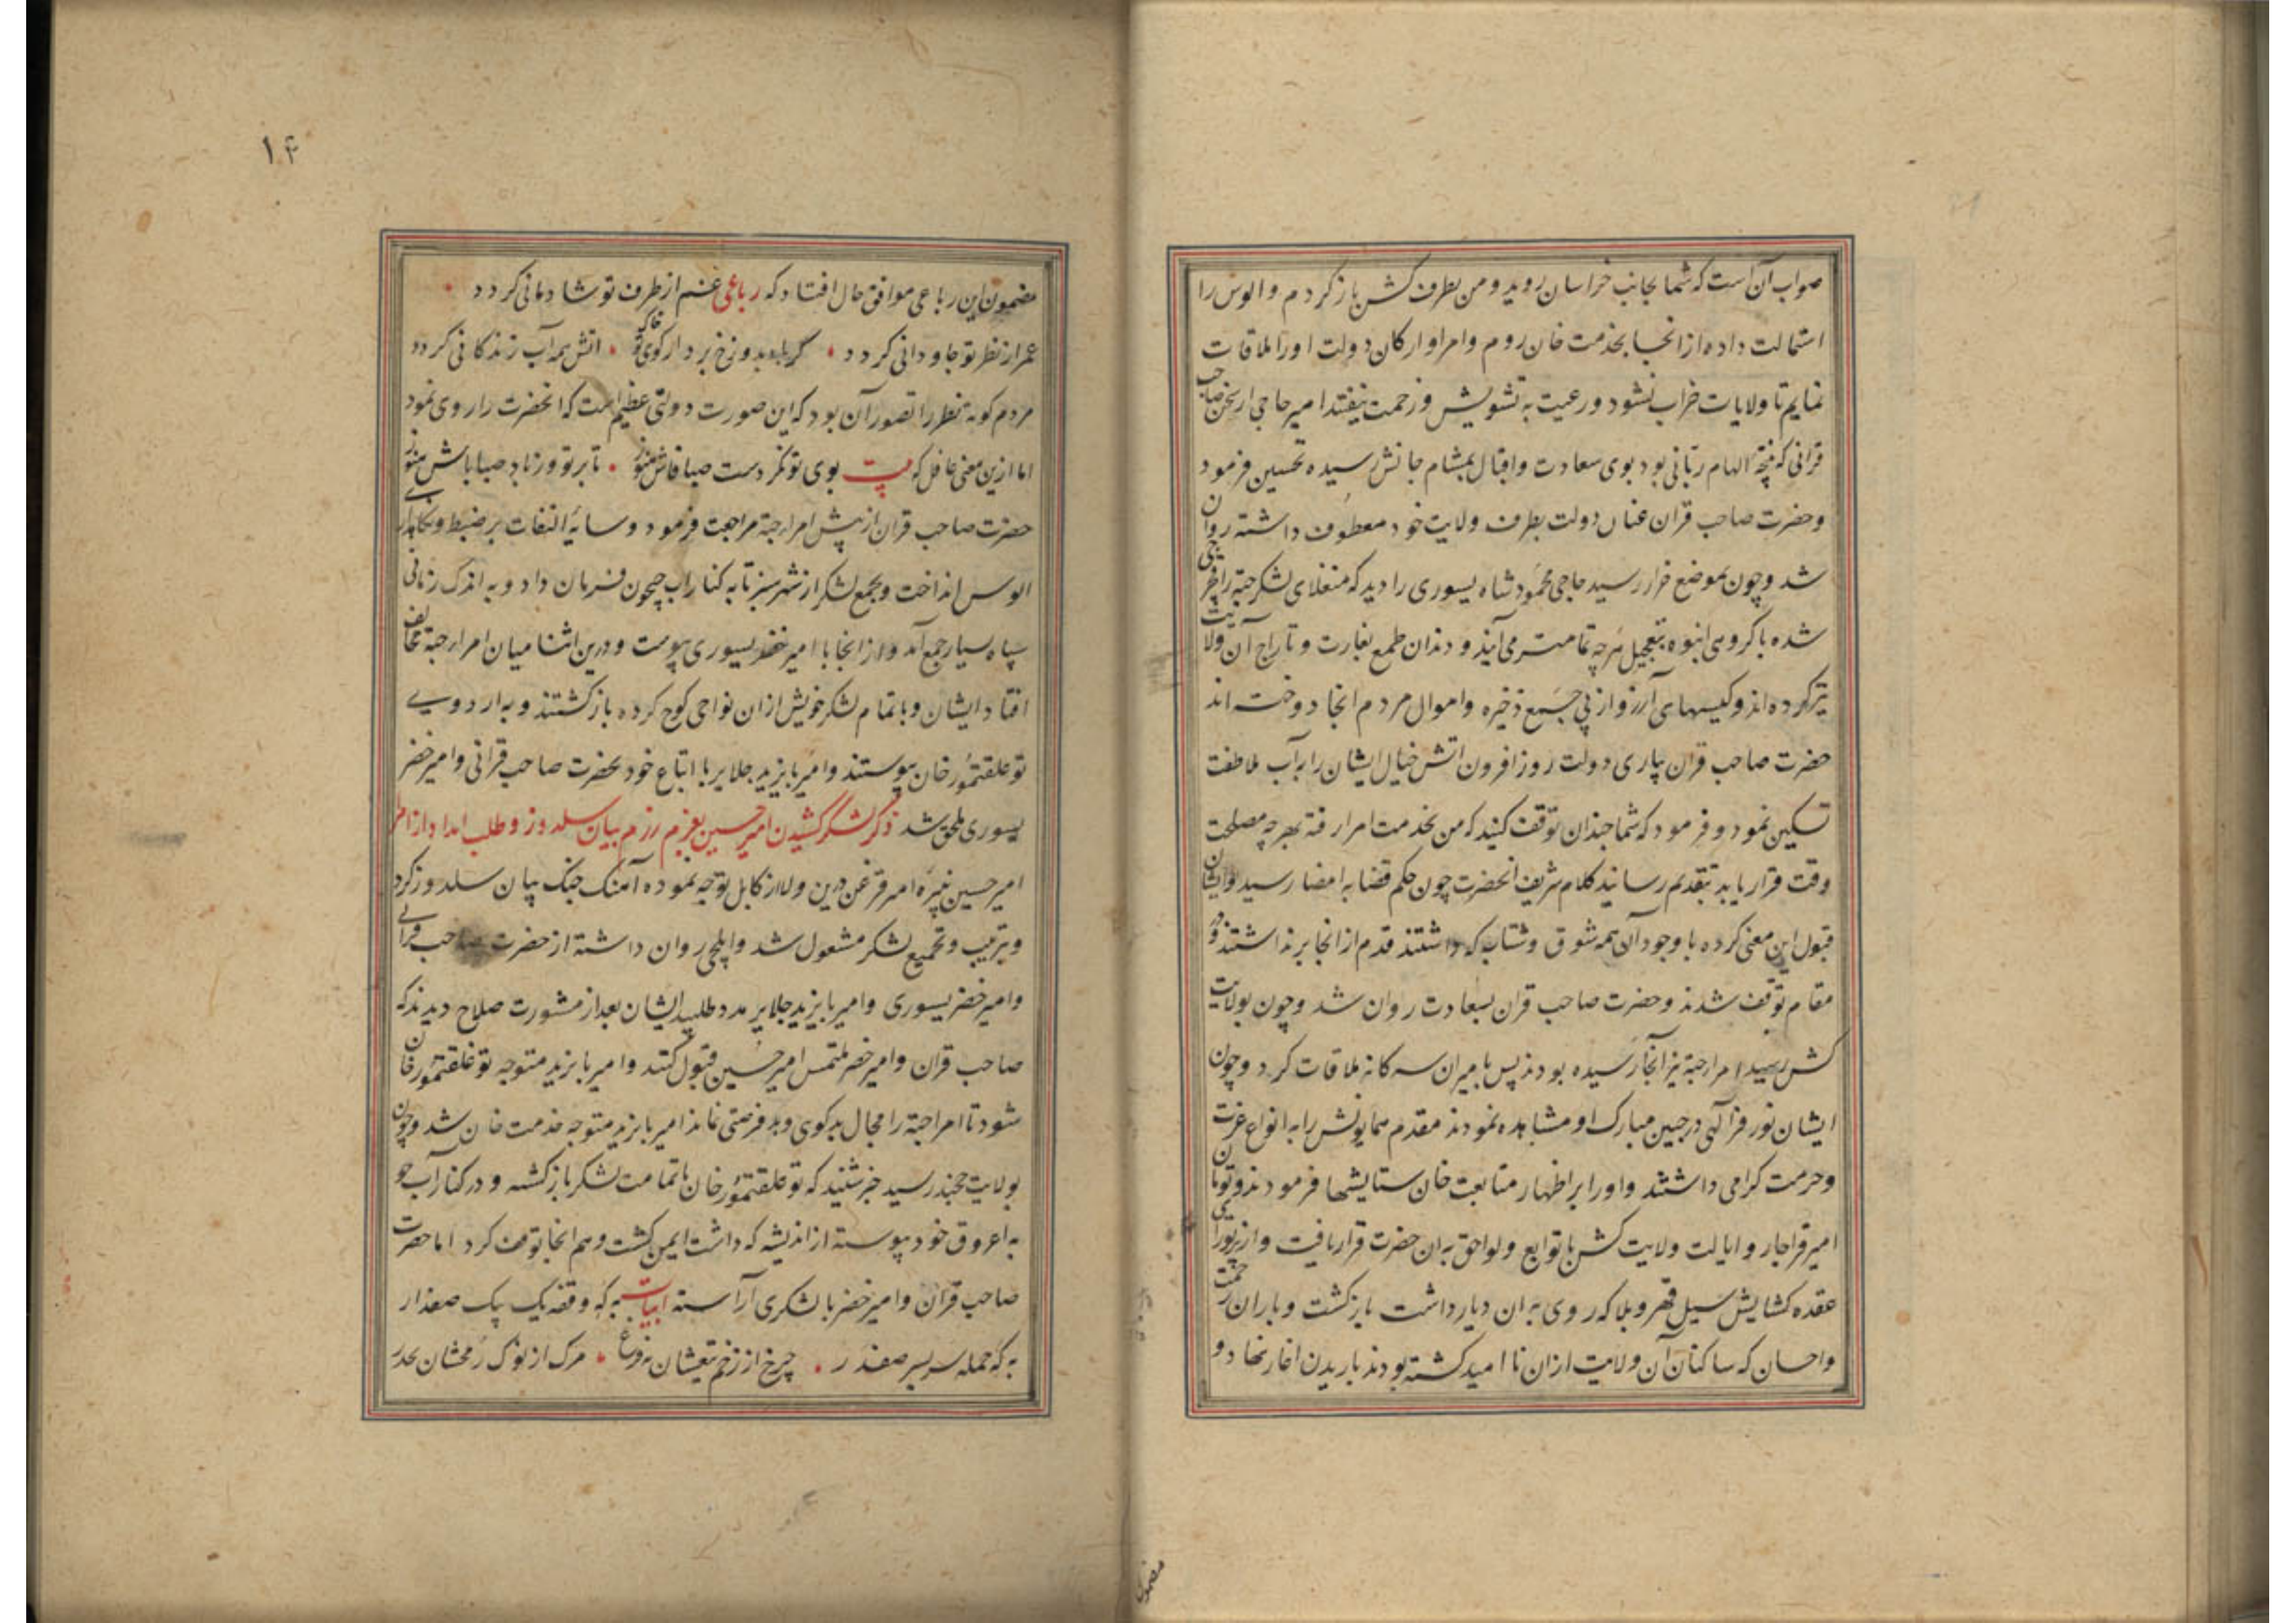 صواب آن است که شما بجانب خراسان روید و من بطرف کش باز کردم و الوس را
استمالت داده از انجا بخدمت خان روم و امرا و ارکان دولت او را ملاقات
نمایم تا ولایات خراب نشود و رعیت به تشویش و زحمت نیفتد امیر حاجی از سخن صاحب
قرانی که نتیجهٔ الهام ربّانی بود بوی سعادت و اقبال بمشام جانش رسیده تحسین فرمود
و حضرت صاحب قران عنان دولت بطرف ولایت خود معطوف داشته روان
شد و چون بموضع خزار رسید حاجی محمود شاه یسوری را دید که منغلای لشکر جته را غجرجی
شده با کروهی انبوه بتعجیل هر چه تمامتر می آیند و دندان طمع بغارت و تاراج آن ولایت
تیز کرده اند و کیسهای آرزو از پی جمع ذخیره و اموال مردم انجا دوخته اند
حضرت صاحب قران بیاری دولت روز افزون اتش خیال ایشان را بآب ملاطفت
تسکین نمود و فرمود که شما چندان توقف کنید که من بخدمت امرا رفته بهر چه مصلحت
وقت قرار یابد بتقدیم رسانید کلام شریف انحضرت چون حکم قضا به امضا رسید و ایشان
قبول این معنی کرده با وجود آن همه شوق و شتاب که داشتند قدم از انجا برنداشتند و در
مقام توقف شدند و حضرت صاحب قران بسعادت روان شد و چون بولایت
کش رسید امرا جته نیز آنجا رسیده بودند پس با میران سه کانه ملاقات کرد و چون
ایشان نور فر الهی در جبین مبارک او مشاهده نمودند مقدم همایونش را به انواع عزت
و حرمت کرامی داشتند و او را بر اظهار متابعت خان ستایشها فرمودند و تومان
امیر قراجار و ایالت ولایت کش با توابع و لواحق به ان حضرت قرار یافت و از نور رای
عقده کشایش سیل قهر و بلا که روی به ان دیار داشت باز کشت و باران رحمت
و احسان که ساکنان آن ولایت ازان نا امید کشته بودند باریدن اغاز نهاد و
مضمون
۱۴
مضمون این رباعی موافق حال افتاد که رباعی غم از طرف تو شادمانی کردد
عمر از نظر تو جاودانی کردد گر باد بدوزخ برد از کوی تو خاک اتش همه آب زندکانی کردد
مردم کوته نظر را تصور آن بود که این صورت دولتی عظیم است که انحضرت را روی نمود
اما ازین معنی غافل که بیت بوی تو نکردست صبا فاش هنوز تا بر تو وزد باد صبا باش هنوز
حضرت صاحب قران از پیش امرا جته مراجعت فرمود و سایهٔ التفات بر ضبط و نکاهداری
الوس انداخت و بجمع لشکر از شهر سبز تا به کنار آب جیحون فرمان داد و به اندک زمانی
سپاه بسیار جمع آمد و از انجا با امیر خضر یسوری پیوست و درین اثنا میان امرا جته مخالفت
افتاد ایشان و با تمام لشکر خویش ازان نواحی کوچ کرده باز کشتند و به اردوی
توغلقتمور خان پیوستند و امیر بایزید جلایر با اتباع خود بحضرت صاحب قرانی و امیر خضر
یسوری ملحق شد ذکر لشکر کشیدن امیر حسین بعزم رزم بیان سلدوز و طلب امداد از امرا
امیر حسین نبیرهٔ امیر قزغن درین ولا از کابل توجه نموده آهنک جنک بیان سلدوز کرد
و بترتیب و تجمیع لشکر مشعول شد و ایلچی روان داشته از حضرت صاحب قرانی
و امیر خضر یسوری و امیر بایزید جلایر مدد طلبید ایشان بعد از مشورت صلاح دیدند که
صاحب قران و امیر خضر ملتمس امیر حسین قبول کنند و امیر بایزید متوجه توغلقتمور خان
شود تا امرا جته را مجال بدکوی و بد فرصتی نماند امیر بایزید متوجه خدمت خان شد و چون
بولایت خجند رسید خبر شنید که توغلقتمور خان با تمامت لشکر باز کشته و در کنار آب جو
به اعروق خود پیوسته از اندیشه که داشت ایمن کشت و هم انجا توقف کرد اما حضرت
صاحب قران و امیر خضر با لشکری آراسته ابیات به که وقفه یک بیک صفدار
به که حمله سر بسر صفدر چرخ از زخم تیغشان بدروغ مرک از نوک رمحشان بحذر